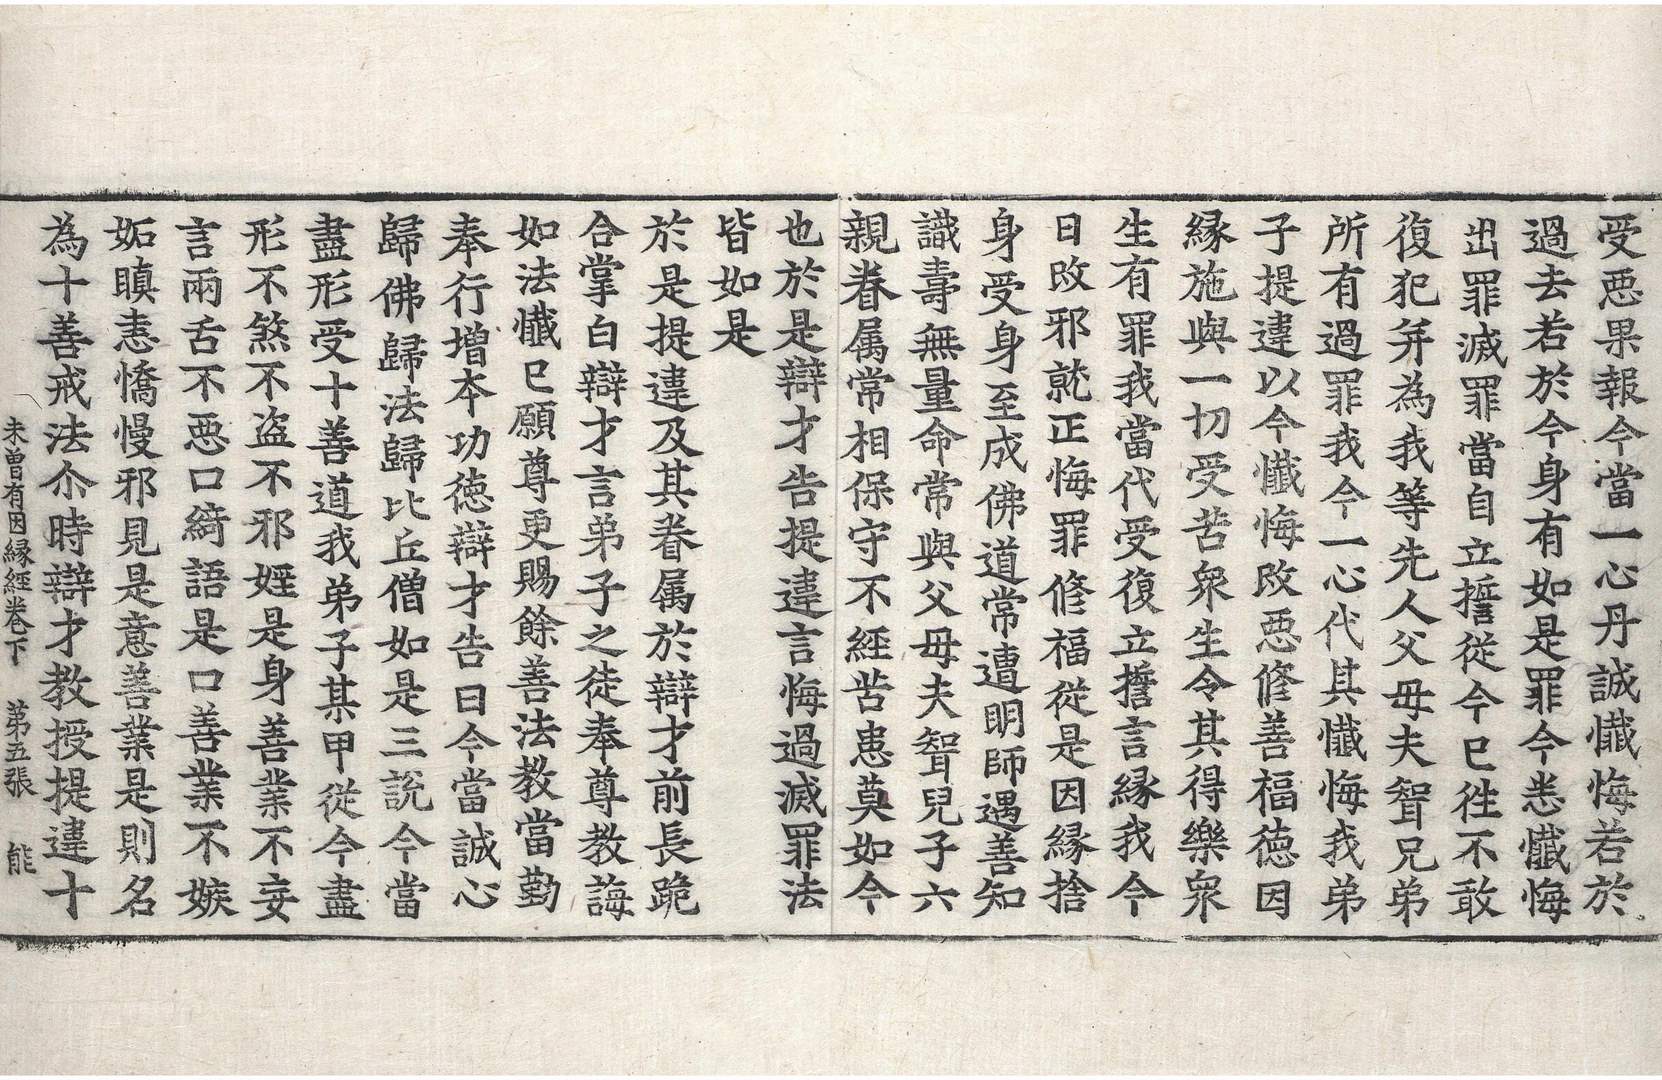 受惡果報今當一心丹誠懺悔若於
過去若於今身有如是罪今悉懺悔
出罪滅罪當自立誓從今已徃不敢
復犯并為我等先人父母夫聟兄弟
所有過罪我今一心代其懺悔我弟
子提違以今懺悔改惡修善福德因
縁施與一切受苦衆生令其得樂衆
生有罪我當代受復立擔言縁我今
日改邪就正悔罪修福從是因縁捨
身受身至成佛道常遭明師遇善知
識壽無量命常與父母夫聟兒子六
親眷属常相保守不經苦患莫如今
也於是辯才告提違言悔過滅罪法
皆如是
於是提違及其眷属於辯才前長跪
合掌白辯才言弟子之徒奉尊教誨
如法懺已願尊更賜餘善法教當勤
奉行增夲功徳辯才告曰今當誠心
歸佛歸法歸比丘僧如是三說今當
盡形受十善道我弟子某甲從今盡
形不煞不盗不邪婬是身善業不妄
言兩舌不惡口綺語是口善業不嫉
妬瞋恚憍慢邪見是意善業是則名
為十善戒法尒時辯才教授提違十
未曽有因縁經卷下　第五張　能